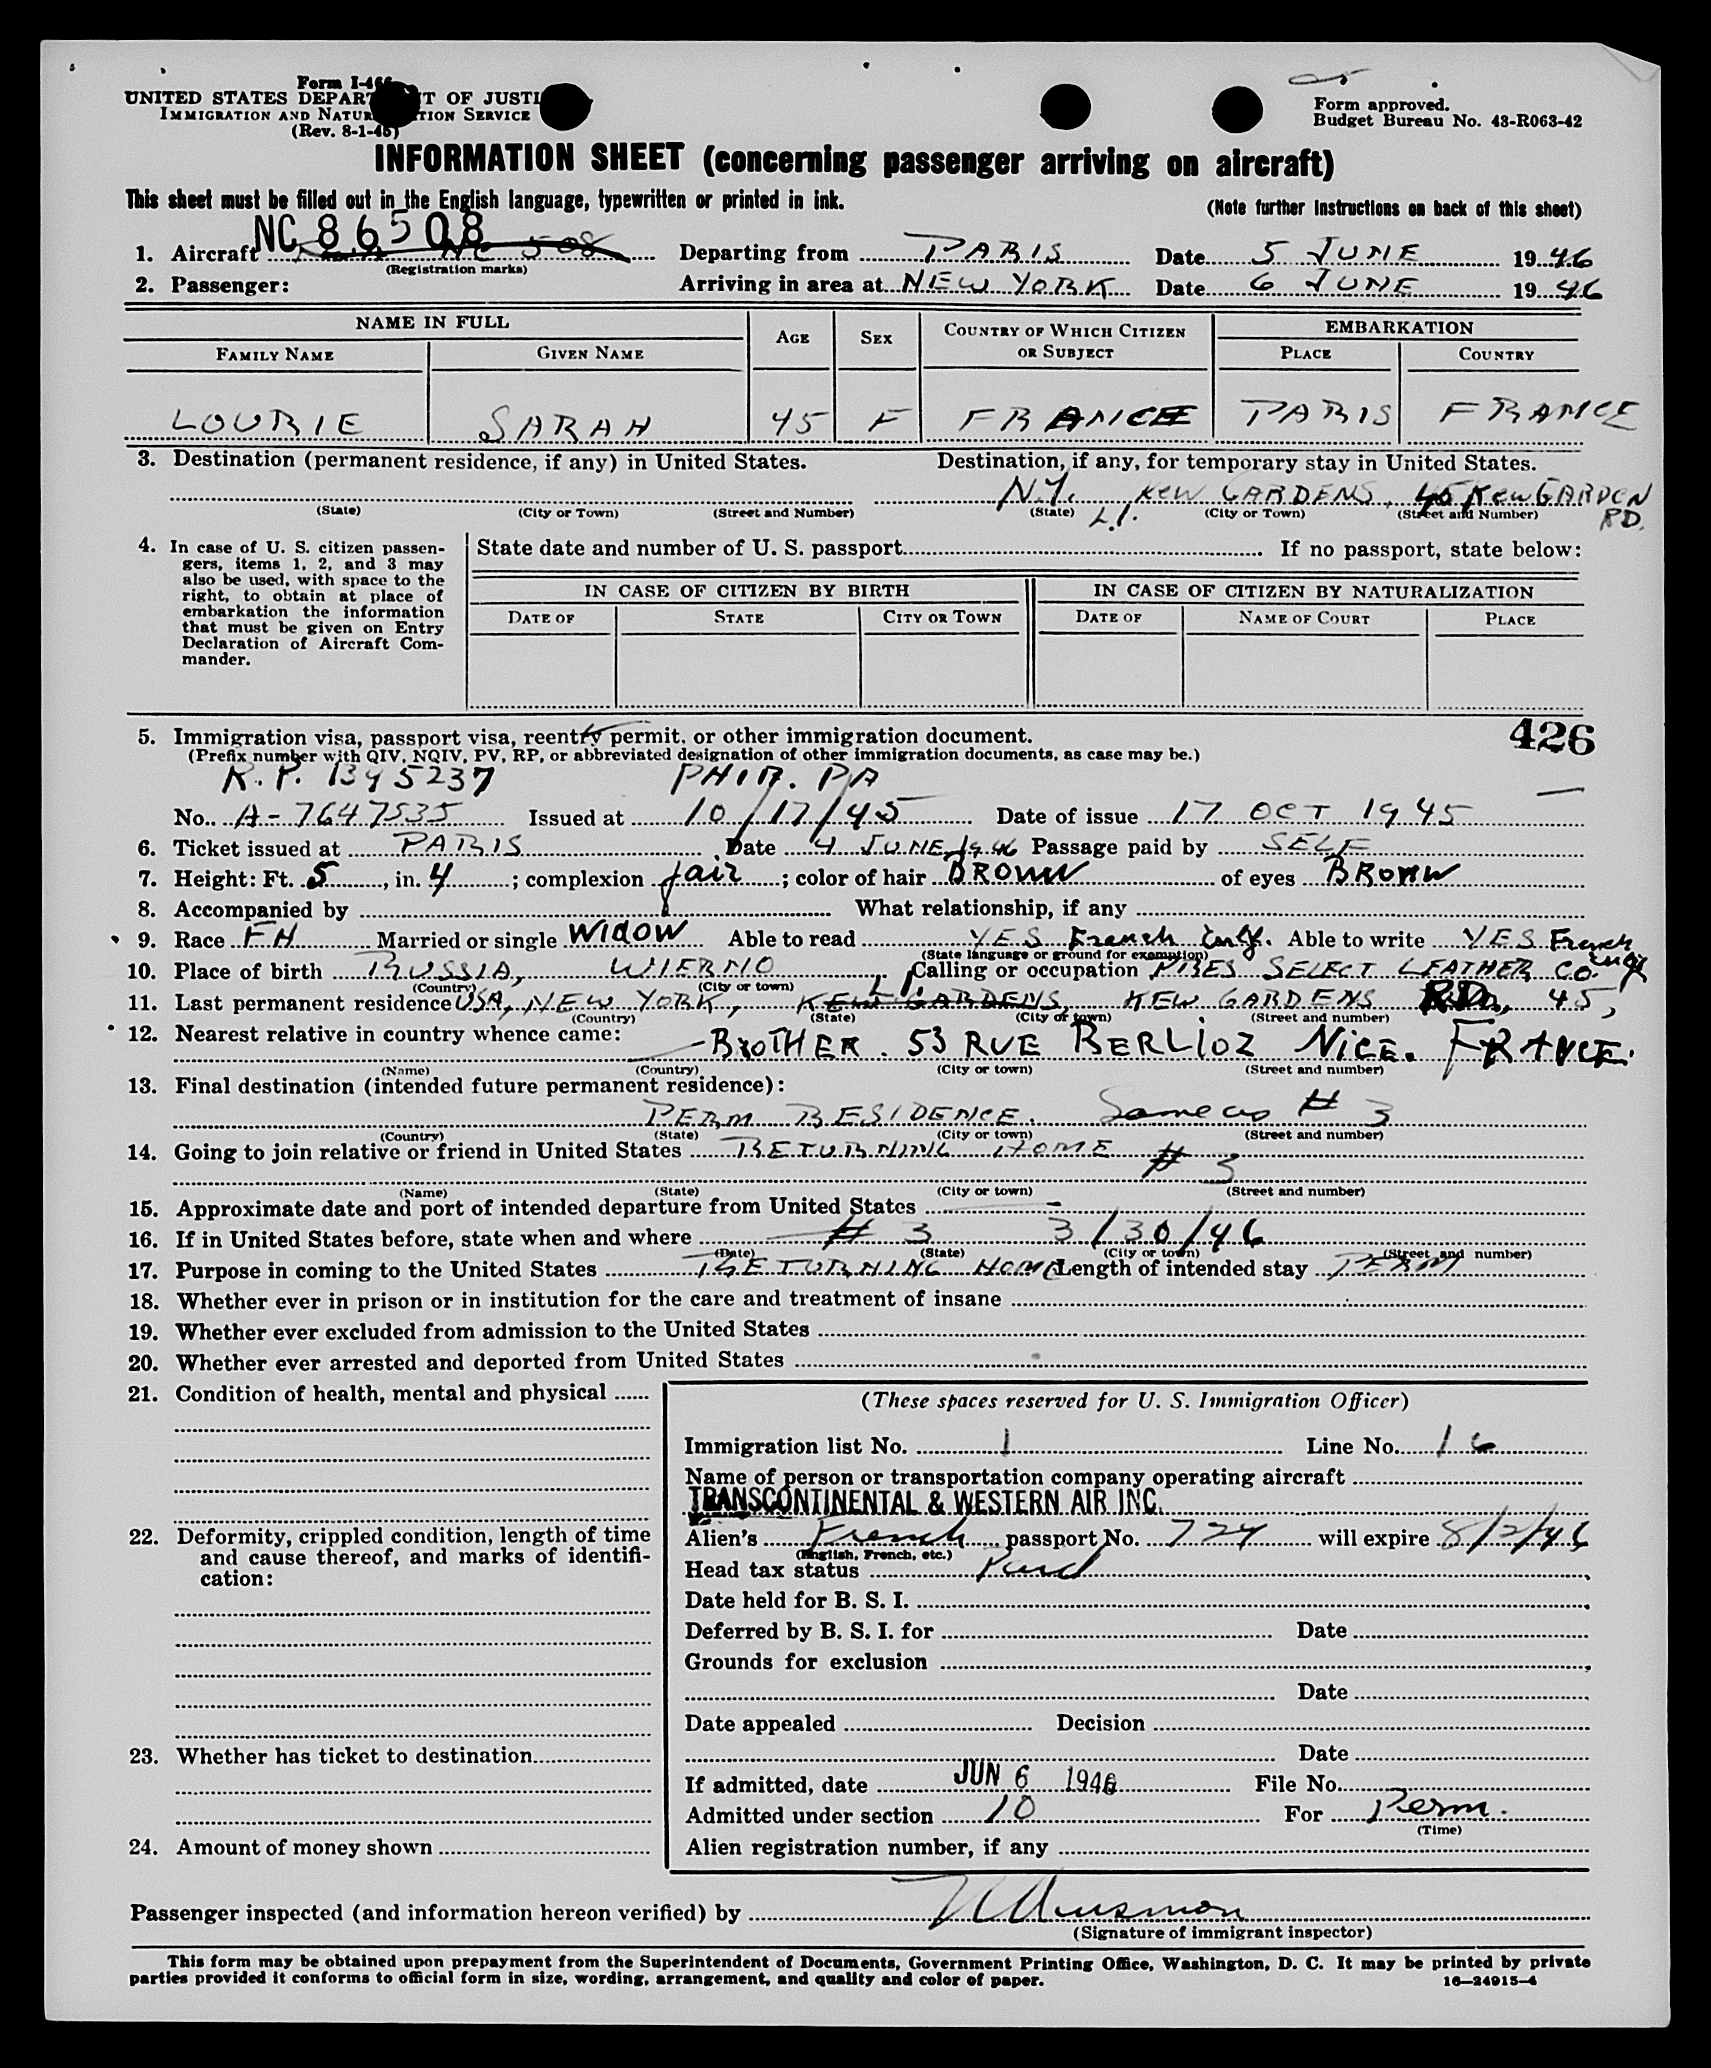 Form I-466
UNITED STATES DEPARTMENT OF JUSTICE
IMMIGRATION AND NATURALIZATION SERVICE
(Rev. 8-1-45)
Form approved.
Budget Bureau No. 43-R063-42
INFORMATION SHEET (concerning passenger arriving on aircraft)
This sheet must be filled out in the English language, typewritten or printed in ink.
(Note further instructions on back of this sheet)
NC 86508
1. Aircraft NC 508 Departing from PARIS Date 5 JUNE 1946
(Registration marks)
2. Passenger: Arriving in area at NEW YORK Date 6 JUNE 1946
NAME IN FULL AGE SEX COUNTRY OF WHICH CITIZEN OR SUBJECT EMBARKATION
FAMILY NAME GIVEN NAME PLACE COUNTRY
LOURIE SARAH 45 F FRANCE PARIS FRANCE
3. Destination (permanent residence, if any) in United States. Destination, if any, for temporary stay in United States.
N.Y. KEW GARDENS, 45 KEW GARDEN RD.
(State) (City or Town) (Street and Number) (State) L.I. (City or Town) (Street and Number)
4. In case of U. S. citizen passen-
gers, items 1, 2, and 3 may
also be used, with space to the
right, to obtain at place of
embarkation the information
that must be given on Entry
Declaration of Aircraft Com-
mander.
State date and number of U. S. passport If no passport, state below:
IN CASE OF CITIZEN BY BIRTH IN CASE OF CITIZEN BY NATURALIZATION
DATE OF STATE CITY OR TOWN DATE OF NAME OF COURT PLACE
426
5. Immigration visa, passport visa, reentry permit, or other immigration document.
(Prefix number with QIV, NQIV, PV, RP, or abbreviated designation of other immigration documents, as case may be.)
R. P. 1395237 PHIA. PA
No. A-7647535 Issued at 10/17/45 Date of issue 17 OCT 1945
6. Ticket issued at PARIS Date 4 JUNE 1946 Passage paid by SELF
7. Height: Ft. 5, in. 4; complexion fair; color of hair BROWN of eyes BROWN
8. Accompanied by What relationship, if any
9. Race FH Married or single WIDOW Able to read YES French Engl. Able to write YES French Engl
(State language or ground for exemption)
10. Place of birth RUSSIA, WIERNO Calling or occupation PRES SELECT LEATHER CO.
(Country) (City or town) L.I.
11. Last permanent residence USA, NEW YORK, KEW GARDENS, KEW GARDENS RD, 45,
(Country) (State) (City or town) (Street and number)
12. Nearest relative in country whence came:
BROTHER. 53 RUE BERLIOZ NICE. FRANCE.
(Name) (Country) (City or town) (Street and number)
13. Final destination (intended future permanent residence):
PERM RESIDENCE. Same as # 3
(Country) (State) (City or town) (Street and number)
14. Going to join relative or friend in United States RETURNING HOME
# 3
(Name) (State) (City or town) (Street and number)
15. Approximate date and port of intended departure from United States —
16. If in United States before, state when and where # 3 3/30/46
(Date) (State) (City or town) (Street and number)
17. Purpose in coming to the United States RETURNING HOME Length of intended stay PERM
18. Whether ever in prison or in institution for the care and treatment of insane
19. Whether ever excluded from admission to the United States
20. Whether ever arrested and deported from United States
21. Condition of health, mental and physical
22. Deformity, crippled condition, length of time
and cause thereof, and marks of identifi-
cation:
23. Whether has ticket to destination
24. Amount of money shown
(These spaces reserved for U. S. Immigration Officer)
Immigration list No. 1 Line No. 16
Name of person or transportation company operating aircraft
TRANSCONTINENTAL & WESTERN AIR INC.
Alien's French passport No. 724 will expire 8/2/46
(English, French, etc.)
Head tax status Paid
Date held for B. S. I.
Deferred by B. S. I. for Date
Grounds for exclusion
Date
Date appealed Decision
Date
If admitted, date JUN 6 1946 File No.
Admitted under section 10 For Perm.
(Time)
Alien registration number, if any
Passenger inspected (and information hereon verified) by
(Signature of immigrant inspector)
This form may be obtained upon prepayment from the Superintendent of Documents, Government Printing Office, Washington, D. C. It may be printed by private
parties provided it conforms to official form in size, wording, arrangement, and quality and color of paper.
16—24915-4